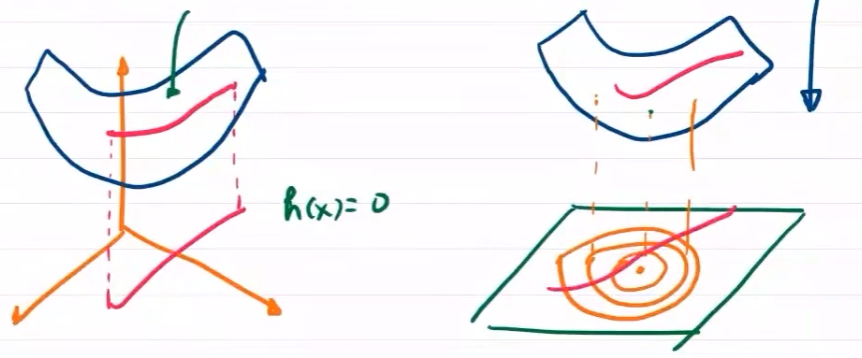 h(x) = 0